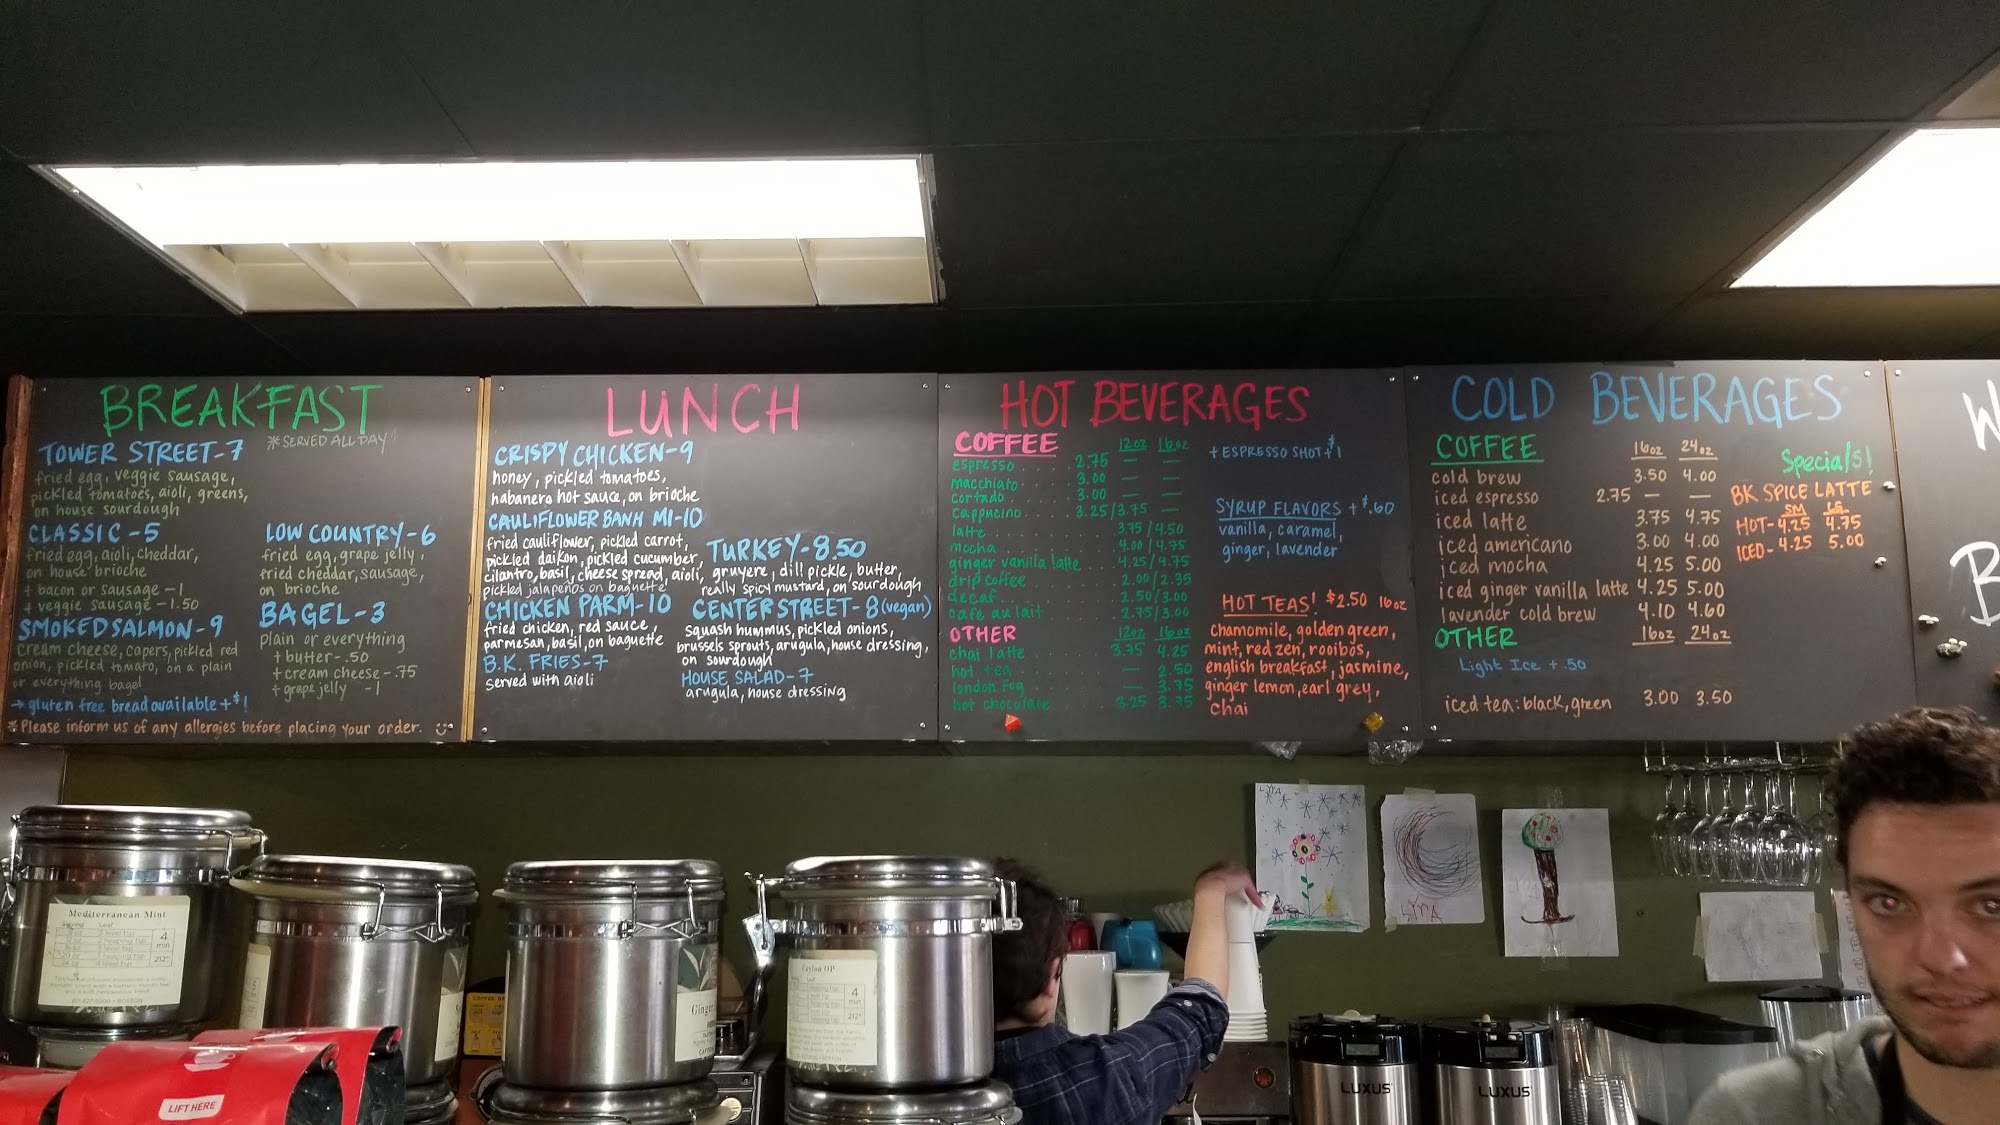 BREAKFAST
TOWER STREET-7
*SERVED ALL DAY
fried egg, veggie sausage,
pickled tomatoes, aioli, greens,
on house sourdough
CLASSIC-5
fried egg, aioli, cheddar,
on house brioche
+ bacon or sausage -1
+ veggie sausage -1.50
LOW COUNTRY-6
fried egg, grape jelly,
fried cheddar, sausage,
on brioche
SMOKED SALMON-9
cream cheese, capers, pickled red
onion, pickled tomato, on a plain
or everything bagel
BAGEL-3
plain or everything
+ butter-.50
+ cream cheese-.75
+ grape jelly -1
→ gluten free bread available +$1
*Please inform us of any allergies before placing your order.
LUNCH
CRISPY CHICKEN-9
honey, pickled tomatoes,
habanero hot sauce, on brioche
CAULIFLOWER BANH MI-10
fried cauliflower, pickled carrot,
pickled daikon, pickled cucumber,
cilantro, basil, cheese spread, aioli,
pickled jalapeños on baguette
CHICKEN PARM-10
fried chicken, red sauce,
parmesan, basil, on baguette
B.K. FRIES-7
served with aioli
TURKEY-8.50
gruyere, dill pickle, butter,
really spicy mustard, on sourdough
CENTER STREET-8 (vegan)
squash hummus, pickled onions,
brussels sprouts, arugula, house dressing,
on sourdough
HOUSE SALAD-7
arugula, house dressing
HOT BEVERAGES
COFFEE 12oz 16oz
espresso.....2.75 — —
macchiato.....3.00 — —
cortado.....3.00 — —
cappucino.....3.25/3.75 —
latte 3.75/4.50
mocha 4.00/4.75
ginger vanilla latte 4.25/4.75
drip coffee 2.00/2.35
decaf 2.50/3.00
cafe au lait 2.75/3.00
OTHER 12oz 16oz
chai latte 3.75 4.25
hot tea — 2.50
london fog — 3.75
hot chocolate 3.25 3.75
+ ESPRESSO SHOT +$1
SYRUP FLAVORS +$.60
vanilla, caramel,
ginger, lavender
HOT TEAS! $2.50 16oz
chamomile, golden green,
mint, red zen, rooibos,
english breakfast, jasmine,
ginger lemon, earl grey,
chai
COLD BEVERAGES
COFFEE 16oz 24oz
cold brew 3.50 4.00
iced espresso 2.75 — —
iced latte 3.75 4.75
iced americano 3.00 4.00
iced mocha 4.25 5.00
iced ginger vanilla latte 4.25 5.00
lavender cold brew 4.10 4.60
OTHER 16oz 24oz
Light Ice +.50
iced tea: black, green 3.00 3.50
Specials!
BK SPICE LATTE
SM LG
HOT-4.25 4.75
ICED-4.25 5.00
W
B
LYRA
LYRA
Mediterranean Mint
4
min
212°
Ginger
Ceylon OP
4
min
212°
LIFT HERE
LUXUS
LUXUS